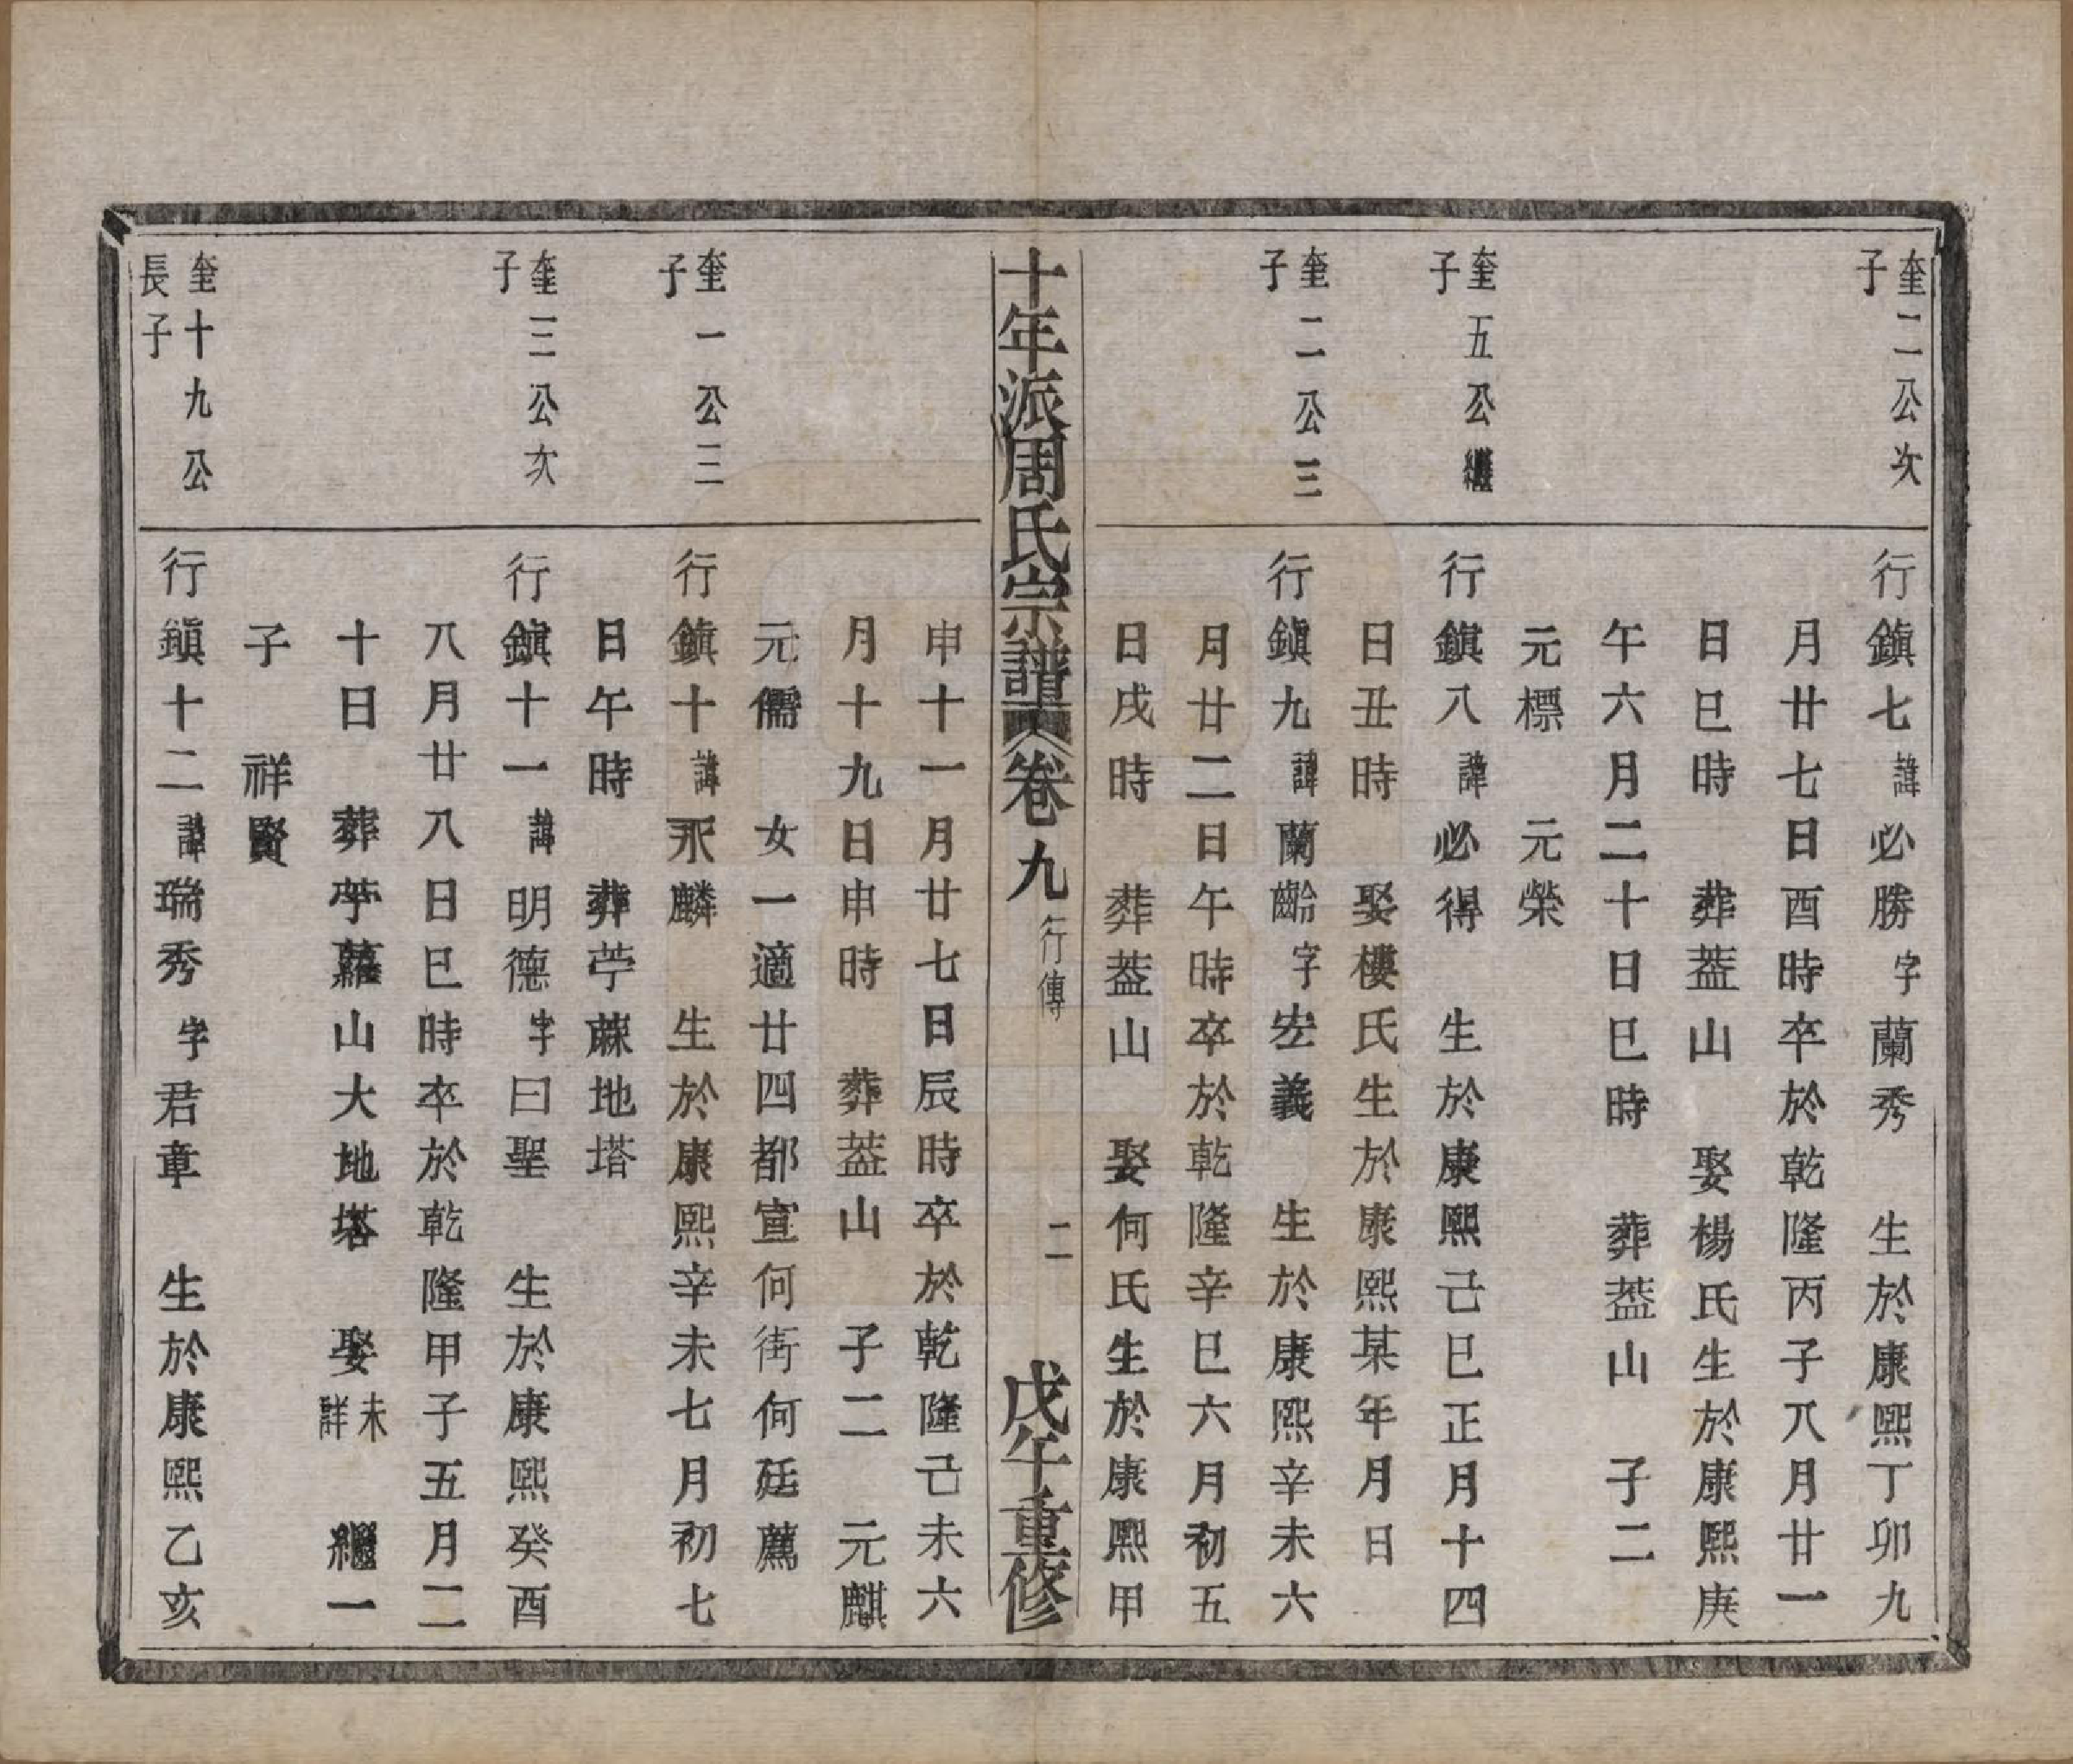 奎二公次
子
行鎮七諱必勝字蘭秀　生於康熙丁卯九
月廿七日酉時卒於乾隆丙子八月廿一
日巳時　葬葢山　娶楊氏生於康熙庚
午六月二十日巳時　葬葢山　子二
元標　元榮
奎五公繼
子
行鎮八諱必得　生於康熙己巳正月十四
日丑時　娶樓氏生於康熙某年月日
奎二公三
子
行鎮九諱蘭齡字宏義　生於康熙辛未六
月廿二日午時卒於乾隆辛巳六月初五
日戌時　葬葢山　娶何氏生於康熙甲
十年派周氏宗譜卷九　行傳　二　戊午重修
申十一月廿七日辰時卒於乾隆己未六
月十九日申時　葬葢山　子二　元麒
元儒　女一適廿四都宣何街何廷薦
奎一公三
子
行鎮十諱永麟　生於康熙辛未七月初七
日午時　葬苧蔴地塔
奎三公次
子
行鎮十一諱明德字曰聖　生於康熙癸酉
八月廿八日巳時卒於乾隆甲子五月二
十日　葬苧蘿山大地塔　娶未詳　繼一
子　祥賢
奎十九公
長子
行鎮十二諱瑞秀字君章　生於康熙乙亥